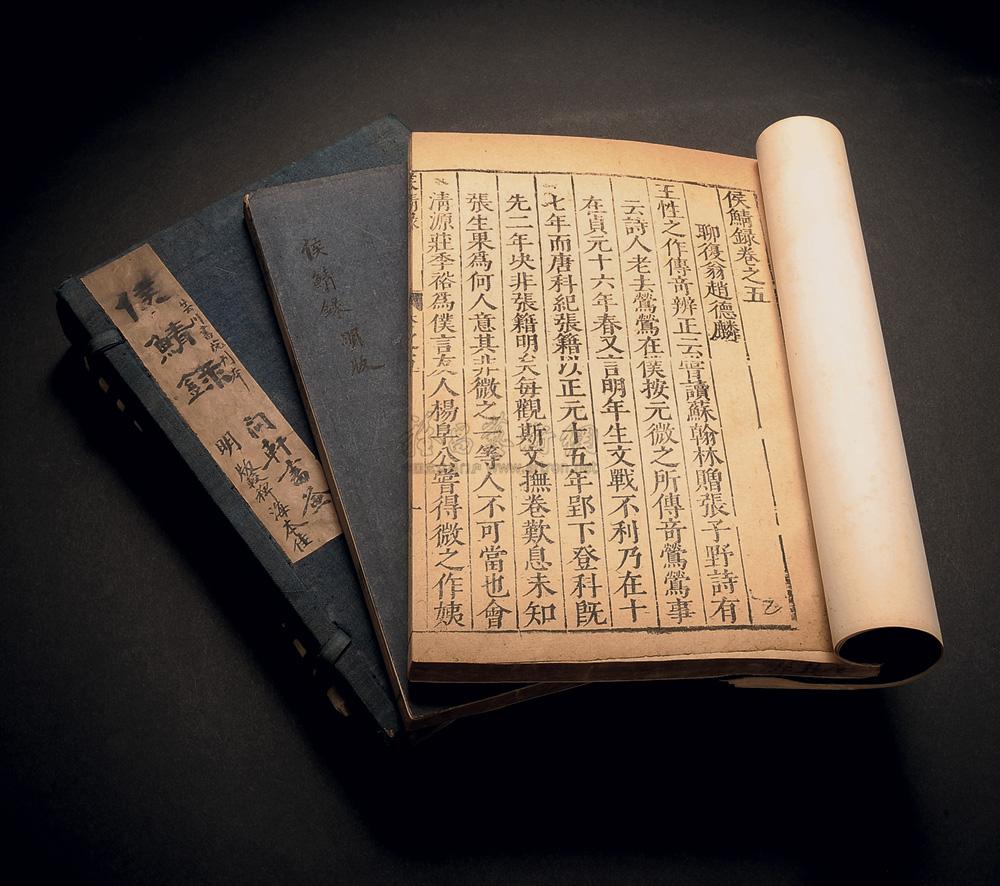 侯鯖錄卷之五
聊復翁趙德麟
王性之作傳奇辨正云嘗讀蘇翰林贈張子野詩有
云詩人老去鶯鶯在僕按元微之所傳奇鶯鶯事
在貞元十六年春又言明年生文戰不利乃在十
七年而唐科紀張籍以正元十五年郢下登科既
先二年决非張籍明矣每觀斯文撫卷歎息未知
張生果為何人意其非微之一等人不可當也會
清源莊季裕為僕言友人楊阜公嘗得微之作姨
侯鯖録
明版
侯鯖錄
明
版較稗海本佳